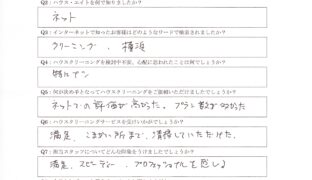 Q2：ハウス・エイトを何で知りましたか？
ネット
Q3：インターネットで知ったお客様はどのようなワードで検索されましたか？
クリーニング、横浜
Q4：ハウスクリーニングを検討中不安、心配に思われたことは何でしょうか？
特にナシ
Q5：何が決め手となってハウスクリーニングをご依頼いただけましたでしょうか？
ネットでの評価が高かった。プラン数が多かった
Q6：ハウスクリーニングサービスを受けいかがでしたか？
満足、こまかい所まで、清掃していただけた。
Q7：担当スタッフについてどんな印象をうけましたでしょうか？
満足、スピーディー、プロフェッショナルを感じる